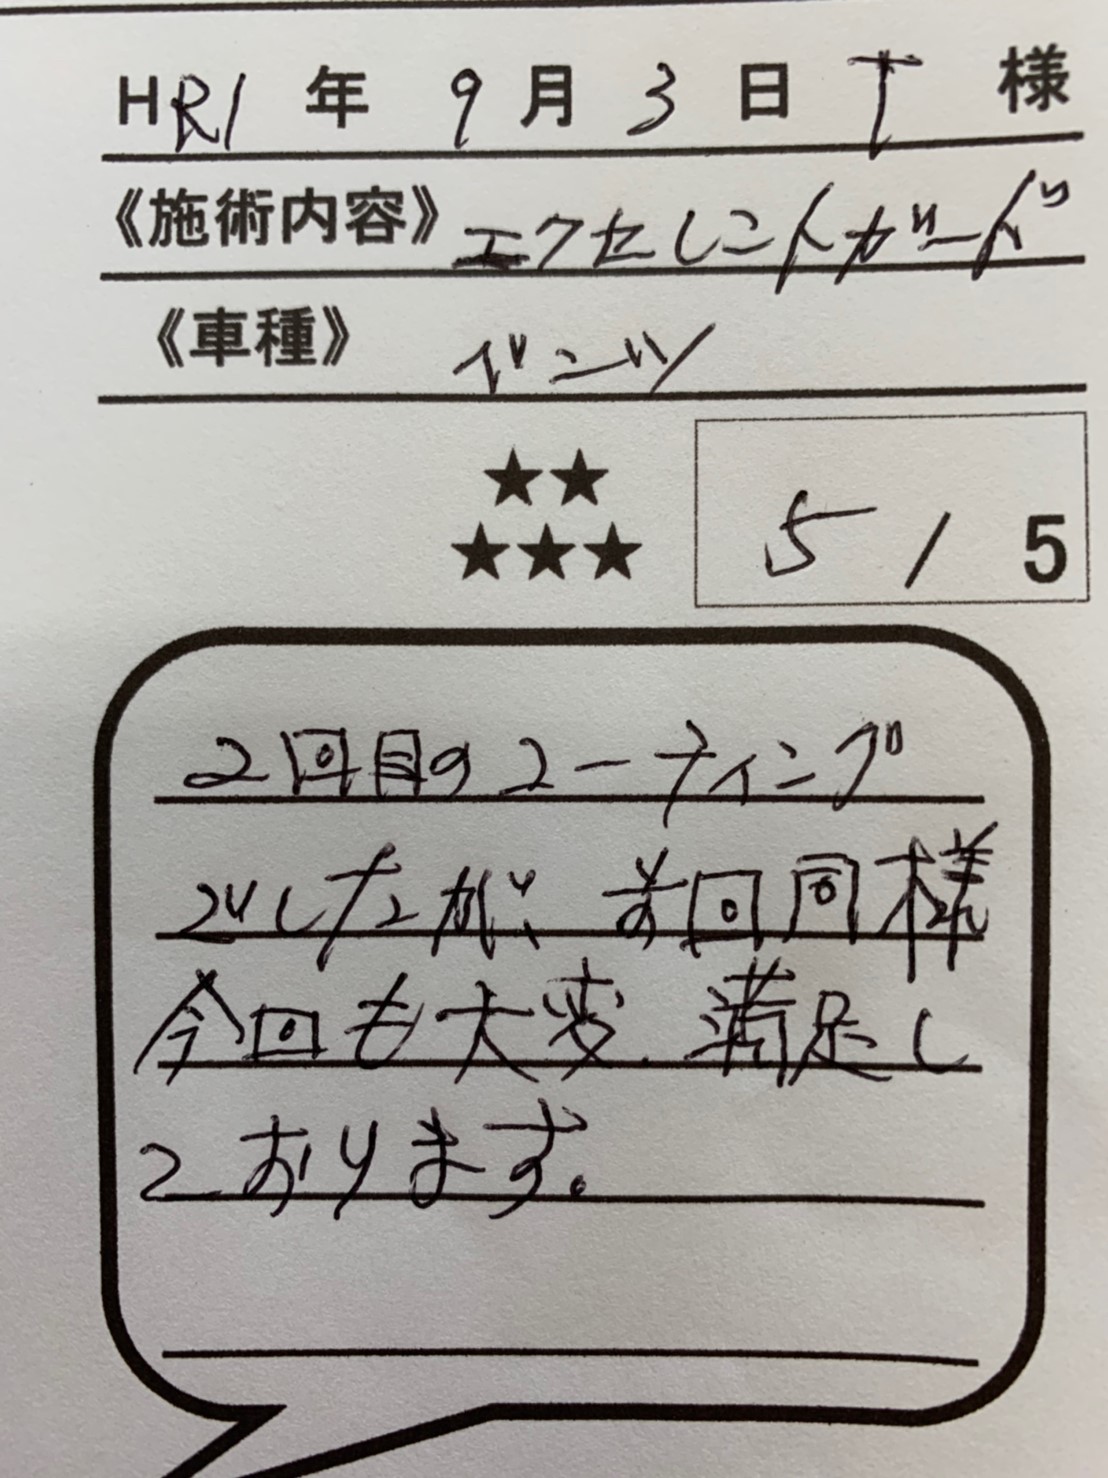 HR1年 9月3日 T 様
《施術内容》エクセレントガード
《車種》ベンツ
★★
★★★
5/5
2回目のコーティング
でしたが、前回同様
今回も大変満足し
ております。